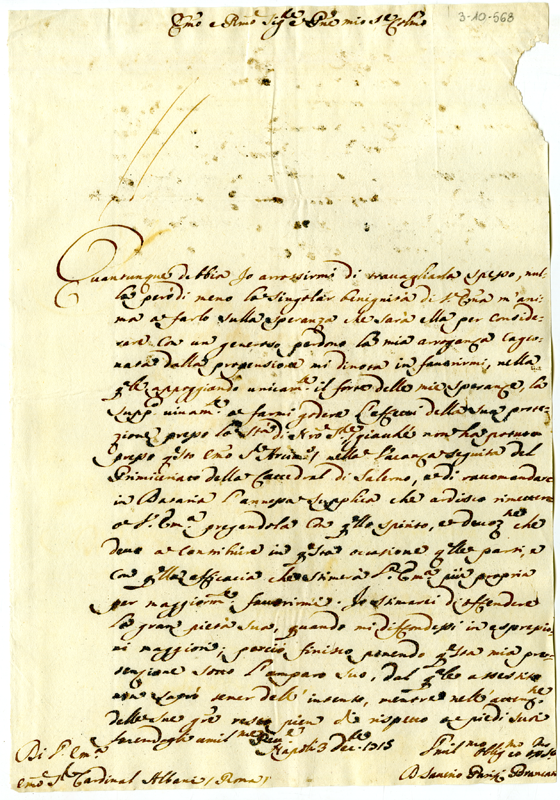 3-10-568
Emo e Rmo Sigre e Pne mio Sr Colmo
Quantunque debbia Io arrossirmi di travagliarla spesso, nul-
la però di meno la singolar benignità di V. Emza m'ani-
ma a farlo sulla speranza che sarà ella per conside-
rare con un generoso perdono la mia arroganza cagio-
nata dalla propensione mi dinota in favorirmi, nella
qle appoggiando unicamte il forte delle mie speranze, la
suppco vivamte a farmi godere l'effetti della sua prote-
zione presso la Stà di Nro Sre, giacché non ha
presso qsto Emo Sr Arcivo, nella vacanza seguita del
Primiceriato della Cattedral di Salerno, e di raccomandare
in Dataria l'annessa supplica che ardisco rimettere
a V. Emza pregandola con qllo spirito, e devozne che
devo a contribuire in qsta occasione qlle parti, e
con qlla efficacia che stimerà V. Emza più propria
per maggiormte favorirmi. Io stimarei d'offendere
la gran pietà sua, quando mi diffondessi in espressio-
ni maggiori; perciò finisco ponendo qsta mia pre-
tenzione sotto l'amparo suo, dal qle assistito
non saprò temer dell'intento, mentre nell'
delle sue gre resto pien di rispetto a piedi suoi
facendogli umilme
Napoli 3 Dbre 1713
Di V. Emza
Umilmo
Emo Sr Cardinal Albani (Roma)